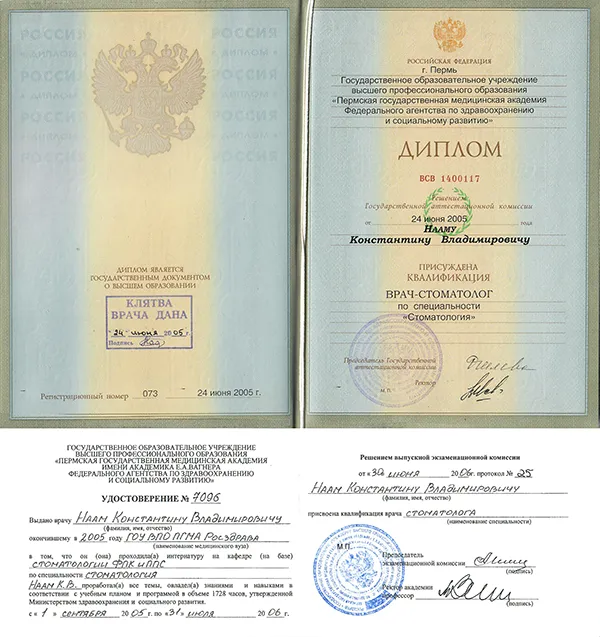 ДИПЛОМ ЯВЛЯЕТСЯ
ГОСУДАРСТВЕННЫМ ДОКУМЕНТОМ
О ВЫСШЕМ ОБРАЗОВАНИИ
КЛЯТВА
ВРАЧА ДАНА
"24" июня 2005 г.
Подпись
Регистрационный номер 073 24 июня 2005 г.
РОССИЙСКАЯ ФЕДЕРАЦИЯ
г. Пермь
Государственное образовательное учреждение
высшего профессионального образования
«Пермская государственная медицинская академия
Федерального агентства по здравоохранению
и социальному развитию»
ДИПЛОМ
ВСВ 1400117
Решением
Государственной аттестационной комиссии
от 24 июня 2005 года
Нааму
Константину Владимировичу
ПРИСУЖДЕНА
КВАЛИФИКАЦИЯ
ВРАЧ-СТОМАТОЛОГ
по специальности
«Стоматология»
Председатель Государственной
аттестационной комиссии
Ректор
М.П.
ГОСУДАРСТВЕННОЕ ОБРАЗОВАТЕЛЬНОЕ УЧРЕЖДЕНИЕ
ВЫСШЕГО ПРОФЕССИОНАЛЬНОГО ОБРАЗОВАНИЯ
"ПЕРМСКАЯ ГОСУДАРСТВЕННАЯ МЕДИЦИНСКАЯ АКАДЕМИЯ
ИМЕНИ АКАДЕМИКА Е.А.ВАГНЕРА
ФЕДЕРАЛЬНОГО АГЕНТСТВА ПО ЗДРАВООХРАНЕНИЮ
И СОЦИАЛЬНОМУ РАЗВИТИЮ"
УДОСТОВЕРЕНИЕ № 7096
Выдано врачу Наам Константину Владимировичу
(фамилия, имя, отчество)
окончившему в 2005 году ГОУ ВПО ПГМА Росздрава
(наименование медицинского вуза)
в том, что он (она) проходил(а) интернатуру на кафедре (на базе)
стоматологии ФПК и ППС
по специальности стоматология
Наам К.В. проработал(а) все темы, овладел(а) знаниями и навыками в
соответствии с учебным планом и программой в объеме 1728 часов, утвержденной
Министерством здравоохранения и социального развития.
с "1" сентября 2005 по "31" июля 2006 г.
Решением выпускной экзаменационной комиссии
от «30» июня 2006г. протокол № 25
Наам Константину Владимировичу
(фамилия, имя, отчество)
присвоена квалификация врача стоматолога
(наименование специальности)
М.П.
Председатель
экзаменационной комиссии
(подпись)
Ректор академии
профессор
(подпись)